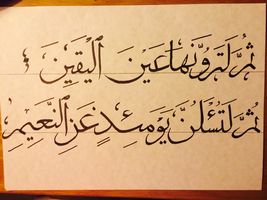 ثُمَّ لَتَرَوُنَّهَا عَيْنَ الْيَقِينِ
ثُمَّ لَتُسْـَٔلُنَّ يَوْمَئِذٍ عَنِ النَّعِيمِ